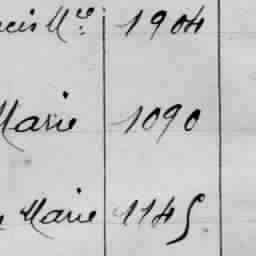 Mce 1904
Marie 1090
Marie 1145